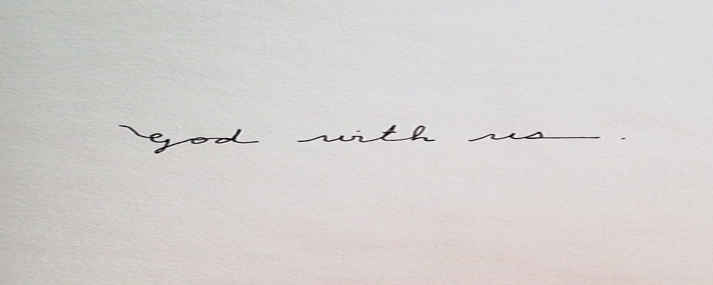 god with us.